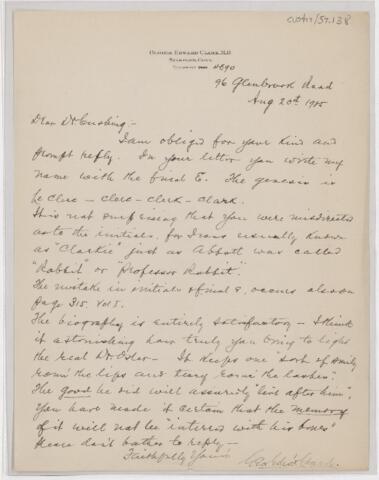 CUSH/ST.138
GEORGE EDWARD CLARK, M.D.
STAMFORD, CONN.
TELEPHONE 4890
96 Glenbrook Road
Aug 20th 1925
Dear Dr. Cushing:-
I am obliged for your kind and
prompt reply. In your letter you wrote my
name with the final E. The genesis is
Le Clerc - clerc - clerk - Clark.
It is not surprising that you were misdirected
as to the initials, for I was usually known
as "Clarkie" just as Abbott was called
"Rabbit" or "Professor Rabbit".
The mistake in initials & final e, occurs also on
page 315. Vol I.
The biography is entirely satisfactory - I think
it astonishing how truly you bring to light
the real Dr. Osler - It keeps one "sort of smily
roun' the lips and teary roun' the lashes".
The good he did will assuredly "live after him".
You have made it certain that the memory
of it will not be "interred with his bones"
Please don't bother to reply -
Faithfully Yours